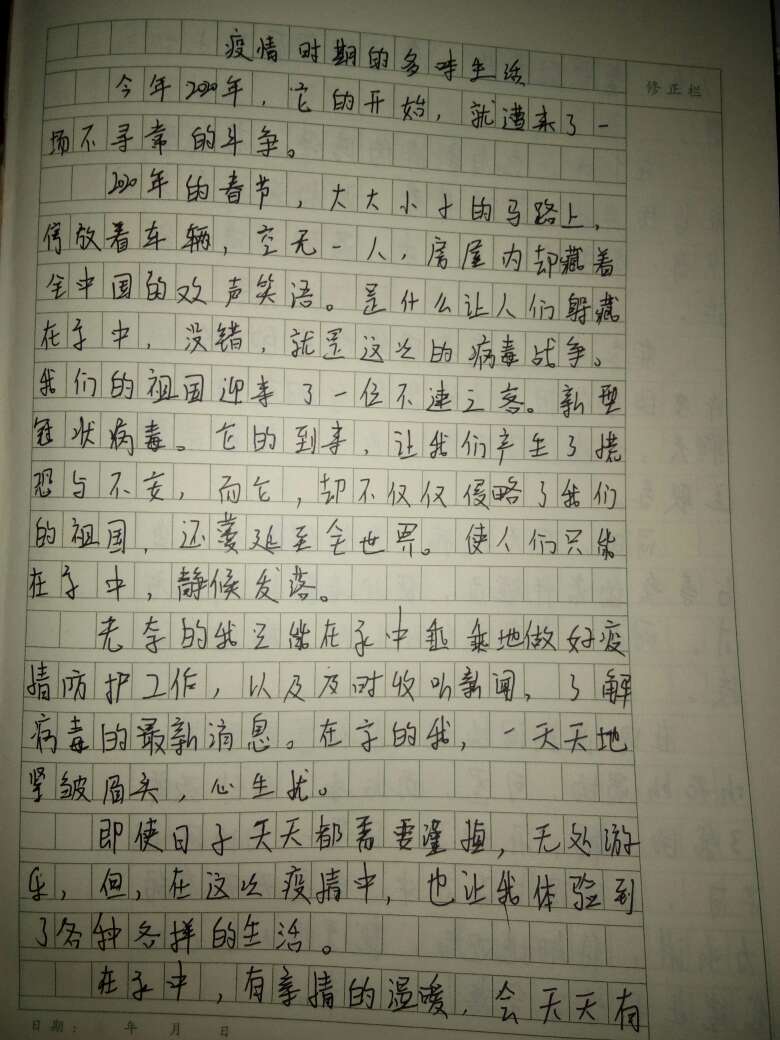 疫情时期的多味生活
修正栏
今年2020年，它的开始，就遭来了一
场不寻常的斗争。
2020年的春节，大大小小的马路上，
停放着车辆，空无一人，房屋内却藏着
全中国的欢声笑语。是什么让人们躲藏
在家中，没错，就是这次的病毒战争。
我们的祖国迎来了一位不速之客。新型
冠状病毒。它的到来，让我们产生了慌
恐与不安，而它，却不仅仅侵略了我们
的祖国，还蔓延至全世界。使人们只能
在家中，静候发落。
老李的我只能在家中乖乖地做好疫
情防护工作，以及及时收听新闻，了解
病毒的最新消息。在家的我，一天天地
紧皱眉头，心生忧。
即使日子天天都需要谨慎，无处游
乐，但，在这次疫情中，也让我体验到
了各种各样的生活。
在家中，有亲情的温暖，会天天有
日期： 年 月 日